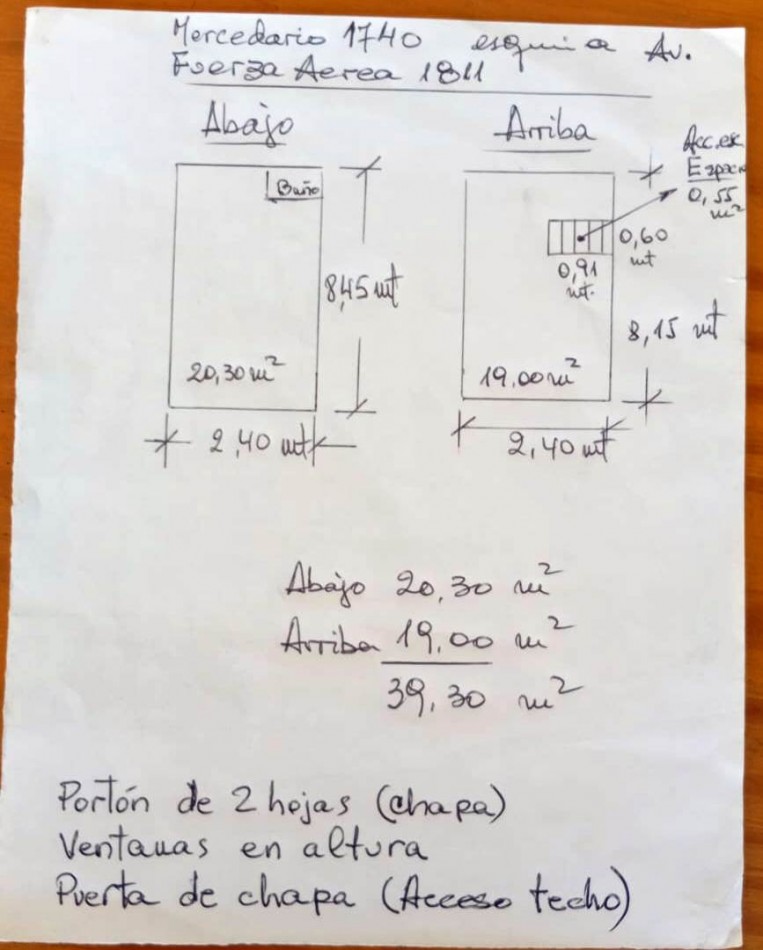 Mercedario 1740 esquina Av.
Fuerza Aerea 1811
Abajo
Baño
8,45 mt
20,30 m²
2,40 mt
Arriba
Acc. esc
Espacio
0,55
m²
0,60
mt
0,91
mt.
8,15 mt
19,00 m²
2,40 mt
Abajo 20,30 m²
Arriba 19,00 m²
39,30 m²
Portón de 2 hojas (chapa)
Ventanas en altura
Puerta de chapa (Acceso techo)